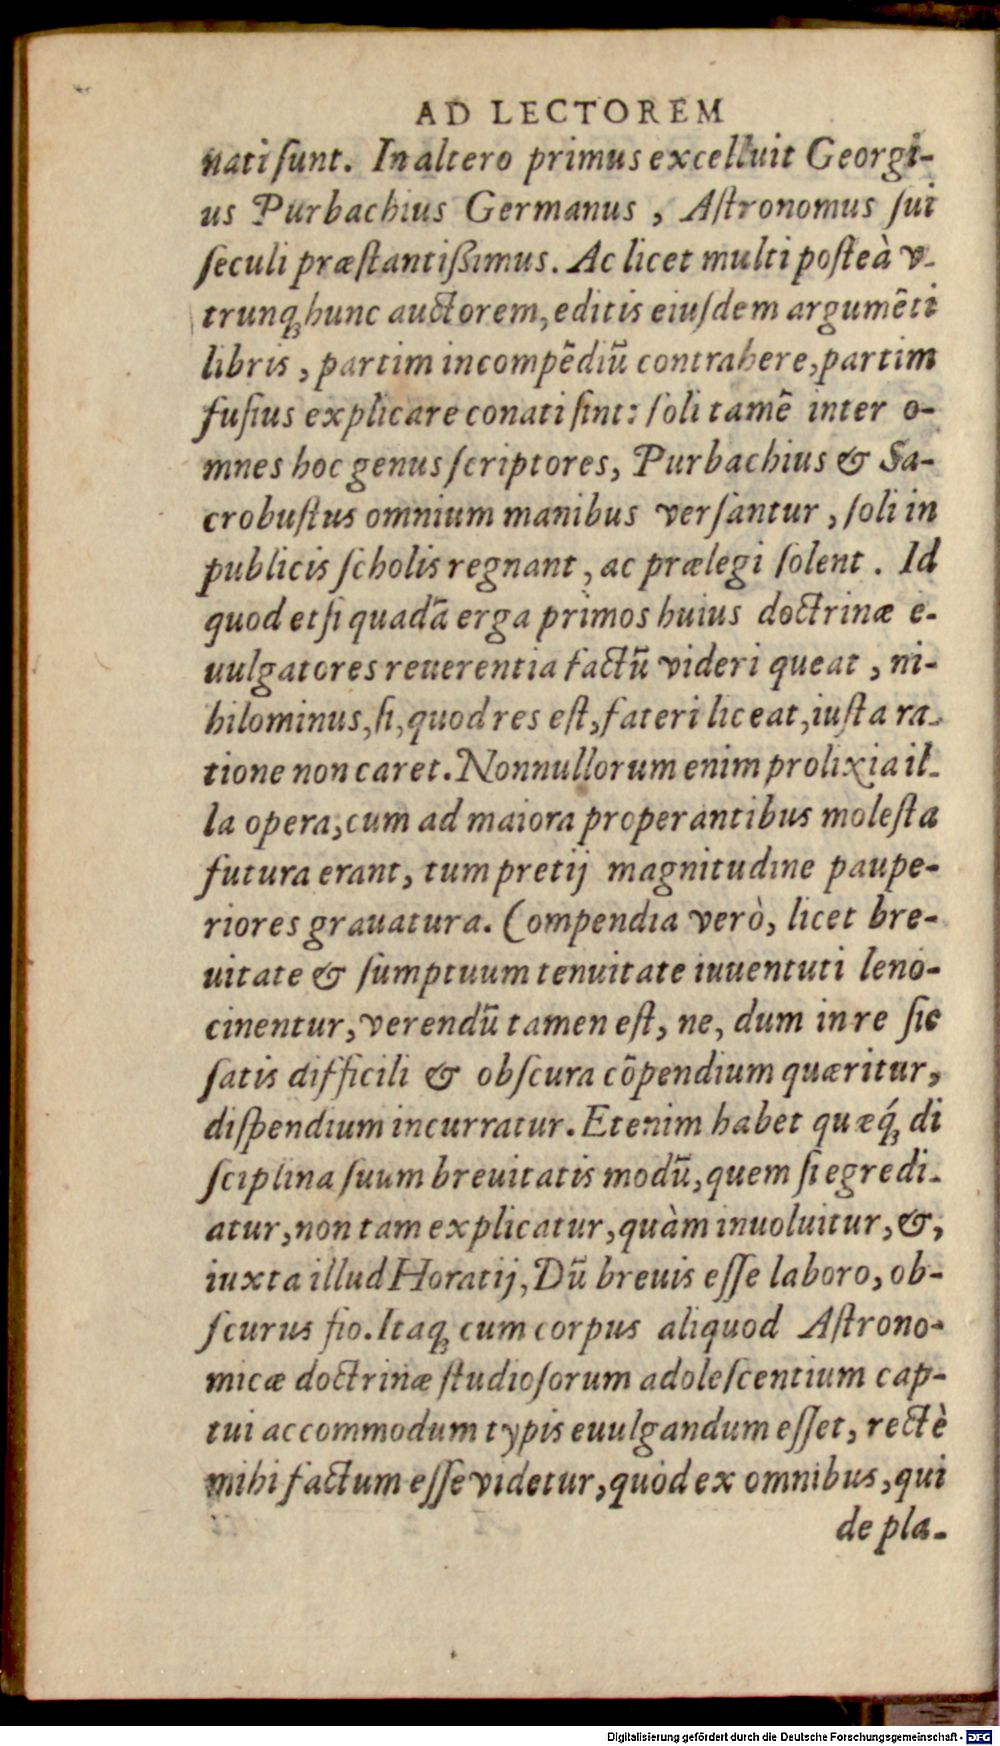 AD LECTOREM
nati ſunt. In altero primus excelluit Georgi-
us Purbachius Germanus , Aſtronomus ſui
ſeculi præſtantiſsimus. Ac licet multi poſteà v-
trunq; hunc auctorem, editis eiuſdem argumẽti
libris , partim in compẽdiũ contrahere, partim
fuſius explicare conati ſint: ſoli tamẽ inter o-
mnes hoc genus ſcriptores, Purbachius & Sa-
crobuſtus omnium manibus verſantur , ſoli in
publicis ſcholis regnant , ac prælegi ſolent . Id
quod etſi quadã erga primos huius doctrinæ e-
uulgatores reuerentia factũ videri queat , ni-
hilominus, ſi, quod res eſt, fateri liceat, iuſta ra-
tione non caret. Nonnullorum enim prolixia il-
la opera, cum ad maiora properantibus moleſta
futura erant, tum pretij magnitudine paupe-
riores grauatura. Compendia verò, licet bre-
uitate & ſumptuum tenuitate iuuentuti leno-
cinentur, verendũ tamen eſt, ne, dum in re ſic
ſatis difficili & obſcura cõpendium quæritur,
diſpendium incurratur. Etenim habet quæq́; di
ſciplina ſuum breuitatis modũ, quem ſi egredi-
atur, non tam explicatur, quàm inuoluitur, &,
iuxta illud Horatij, Dũ breuis eſſe laboro, ob-
ſcurus fio. Itaq; cum corpus aliquod Aſtrono-
micæ doctrinæ ſtudioſorum adoleſcentium cap-
tui accommodum typis euulgandum eſſet, rectè
mihi factum eſſe videtur, quòd ex omnibus, qui
de pla-
Digitalisierung gefördert durch die Deutsche Forschungsgemeinschaft - DFG